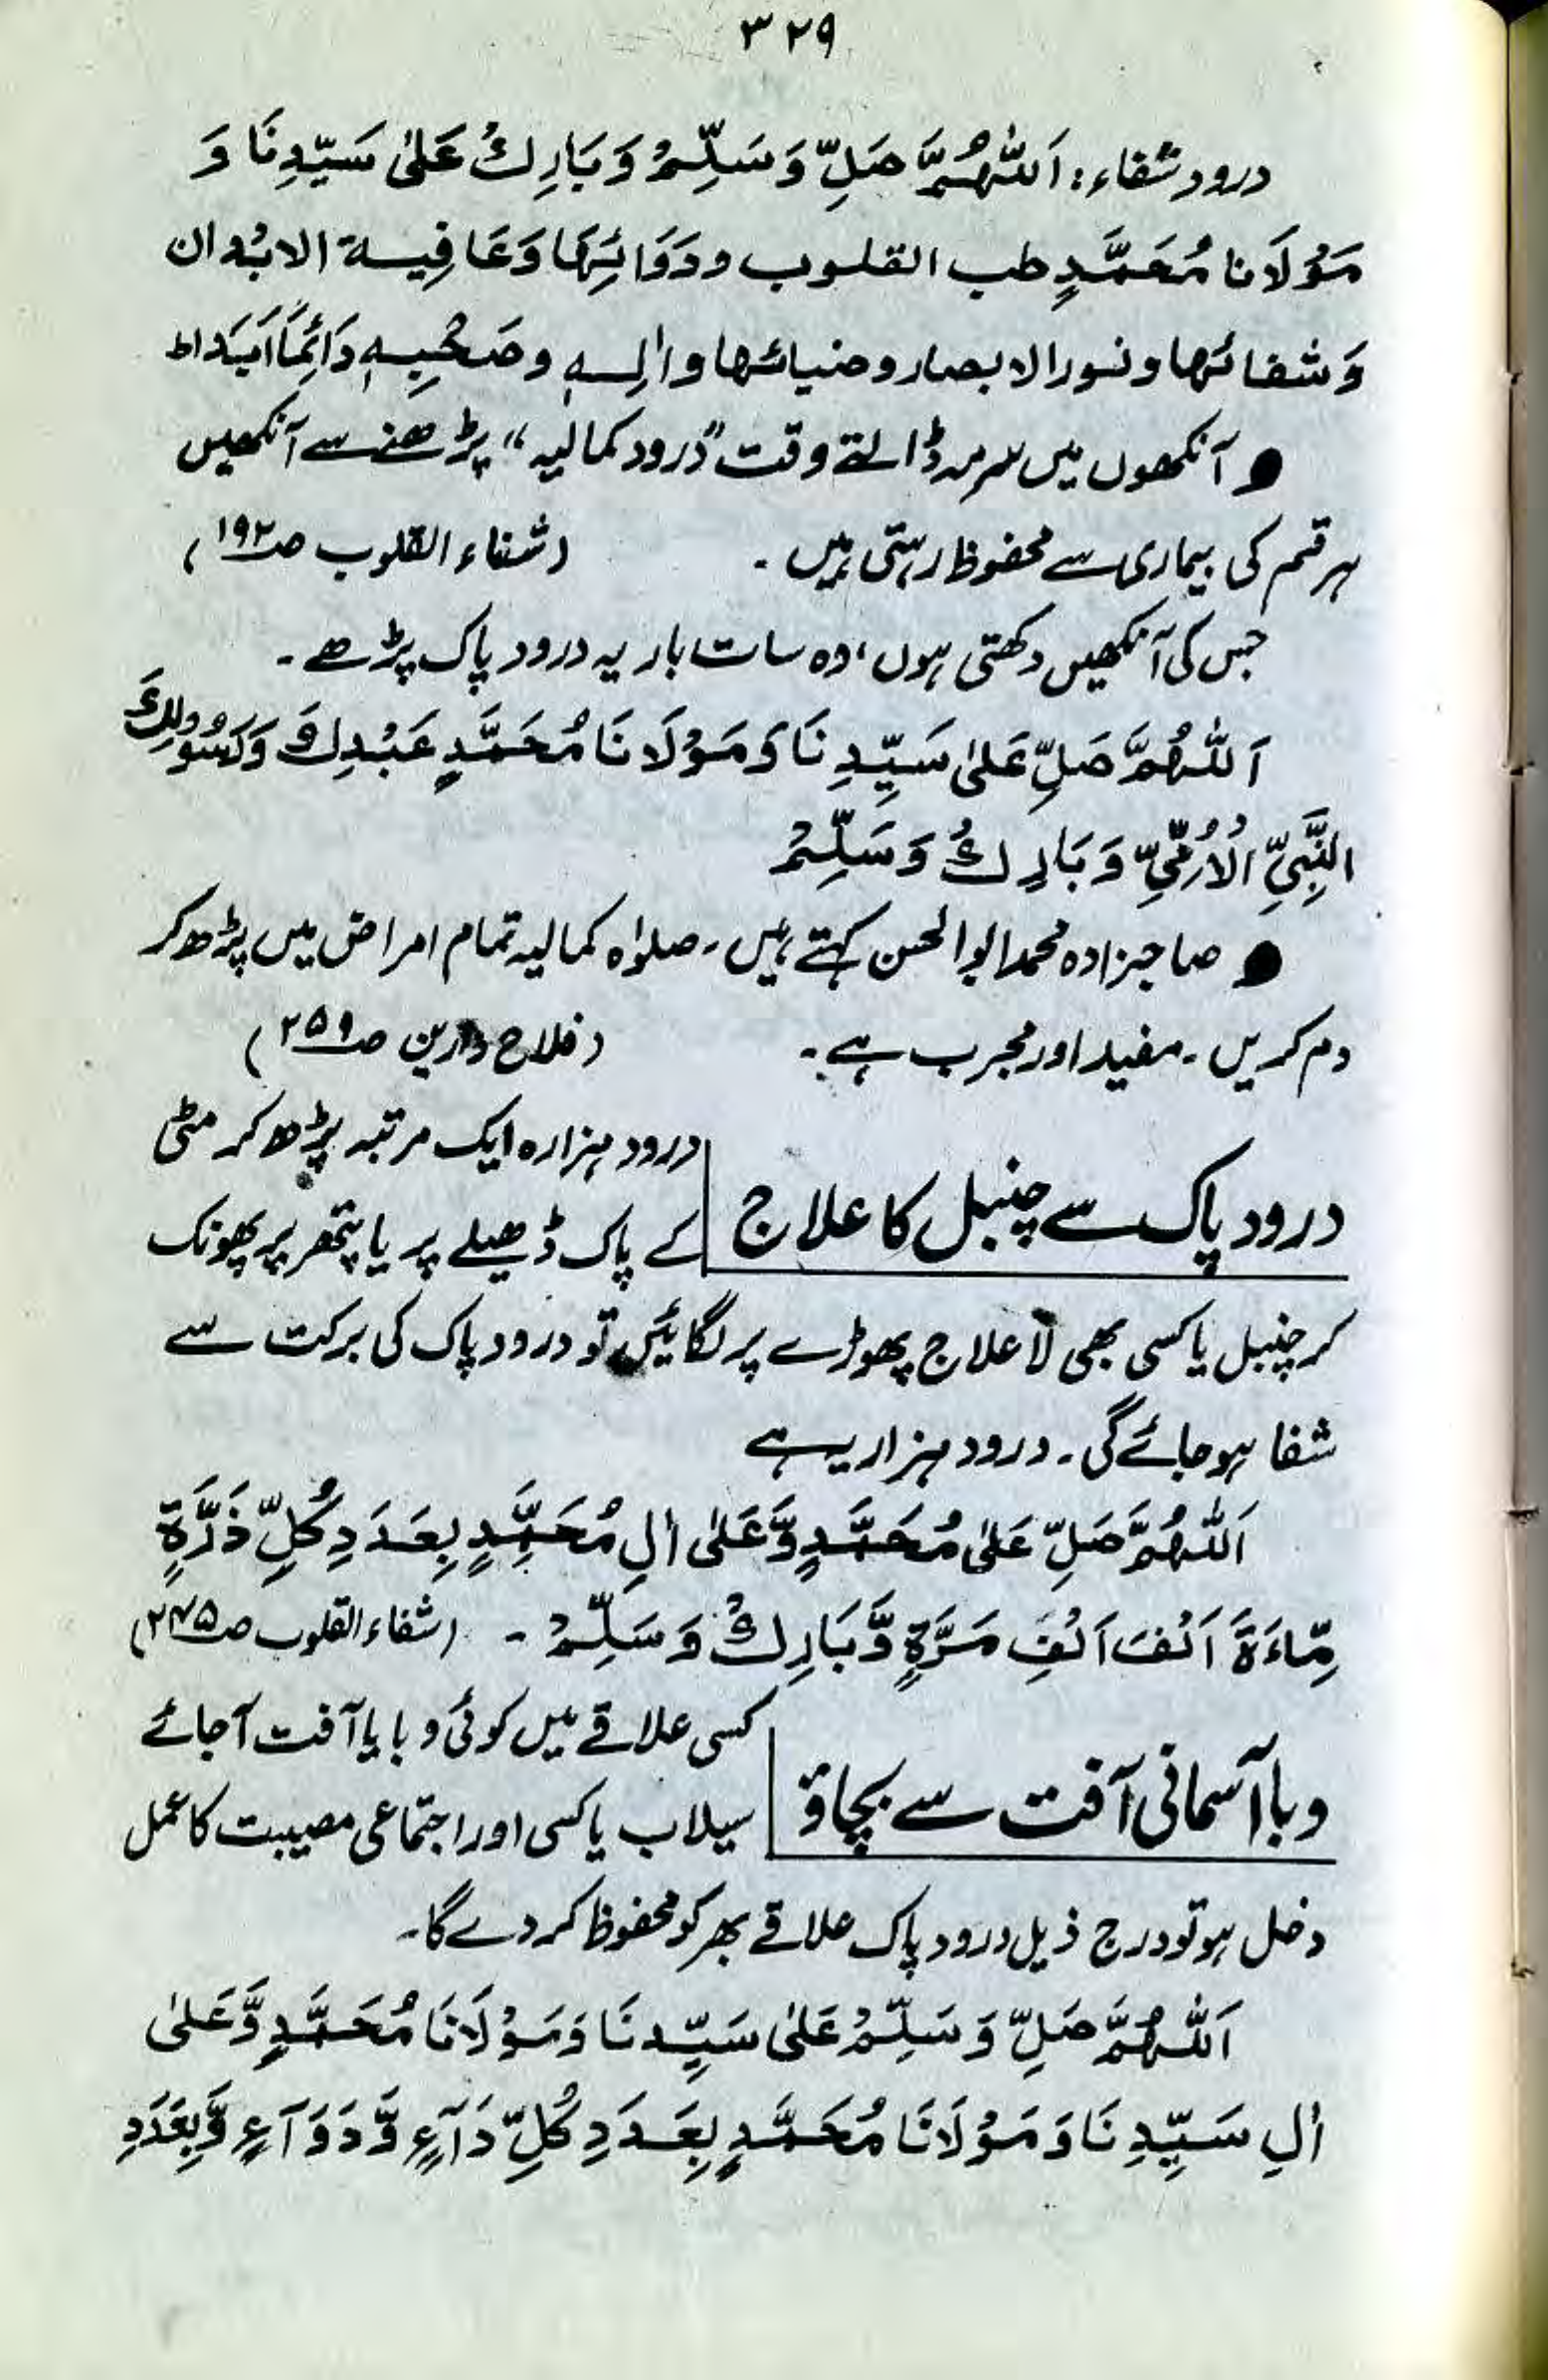 ۳۲۹
درود شفاء: اَللّٰهُمَّ صَلِّ وَسَلِّمْ وَبَارِكْ عَلٰى سَيِّدِنَا وَ
مَوْلَانَا مُحَمَّدٍ طب القلوب ودَوَائِهَا وَعَافِيـة الابْدان
وَشفائها ونـور الابصار وضيائها واٰلِـهٖ وصَحْبِهٖ دَائِمًا اَبَدًا ط
● آنکھوں میں سرمہ ڈالتے وقت ”درود کمالیہ“ پڑھنے سے آنکھیں
ہر قسم کی بیماری سے محفوظ رہتی ہیں ۔ (شفاء القلوب صـ۱۹۲)
جس کی آنکھیں دکھتی ہوں، وہ سات بار یہ درود پاک پڑھے ۔
اَللّٰهُمَّ صَلِّ عَلٰى سَيِّدِنَا وَمَوْلَانَا مُحَمَّدٍ عَبْدِكَ وَرَسُوْلِكَ
النَّبِيِّ الْاُمِّيِّ وَبَارِكْ وَسَلِّمْ
● صاحبزادہ محمد ابوالحسن کہتے ہیں ۔ صلوٰہ کمالیہ تمام امراض میں پڑھ کر
دم کریں ۔ مفید اور مجرب ہے ۔ (فلاح دارین صـ۲۵۹)
درود پاک سے چنبل کا علاج
درود ہزارہ ایک مرتبہ پڑھ کر مٹی
کے پاک ڈھیلے پر یا پتھر پر پھونک
کر چنبل یا کسی بھی لاعلاج پھوڑے پر لگائیں تو درود پاک کی برکت سے
شفا ہو جائے گی ۔ درود ہزار یہ ہے
اَللّٰهُمَّ صَلِّ عَلٰى مُحَمَّدٍ وَّعَلٰى اٰلِ مُحَمَّدٍ بِعَدَدِ كُلِّ ذَرَّةٍ
مِّاءَةَ اَلْفَ اَلْفِ مَرَّةٍ وَّبَارِكْ وَسَلِّمْ ۔ (شفاء القلوب صـ۲۴۵)
وبا آسمانی آفت سے بچاؤ
کسی علاقے میں کوئی وبا یا آفت آجائے
سیلاب یا کسی اور اجتماعی مصیبت کا عمل
دخل ہو تو درج ذیل درود پاک علاقے بھر کو محفوظ کر دے گا ۔
اَللّٰهُمَّ صَلِّ وَسَلِّمْ عَلٰى سَيِّدِنَا وَمَوْلَانَا مُحَمَّدٍ وَّعَلٰى
اٰلِ سَيِّدِنَا وَمَوْلَانَا مُحَمَّدٍ بِعَدَدِ كُلِّ دَآءٍ وَّدَوَآءٍ وَّبِعَدَدِ